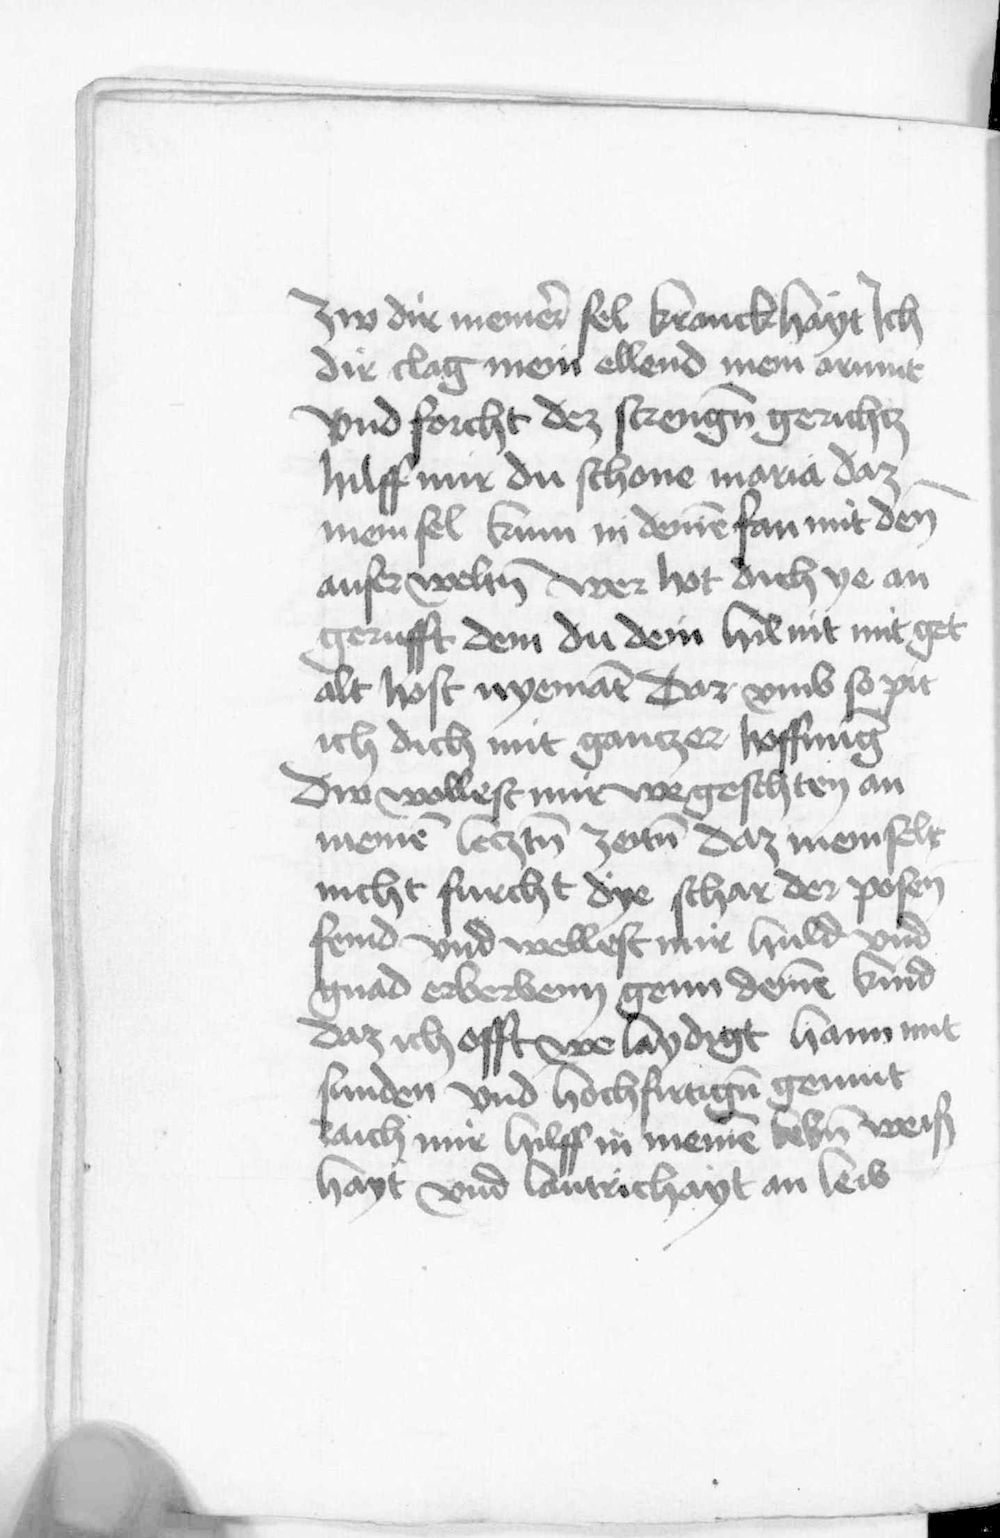 zw dir meiner sel kranckhayt Ich
dir clag mein ellend mein armut
vnd forcht dez strengn̄ gerichtz
hilff mir du schone maria daz
mein sel kum in deinē san mit den̄
auserweltn̄ wer hot dich ye an
gerufft dem du dein hil nit mit get
alt host nyemāt Dar vmb so pit
ich dich mit gantzer hoffnūg
Dw wollest mir we geschten an
meinē lecztn̄ zeitn̄ daz mein selr
nicht furcht dye schar der posen
feind vnd wellest mir huld vnd
gnad erberbenn genn deinē kind
daz ich offt we laydigt hann mit
sunden vnd hochfirtign̄ gemut
raich mir hilff in meinē lebn̄ weiß
hayt vnd lautrichayt an leib